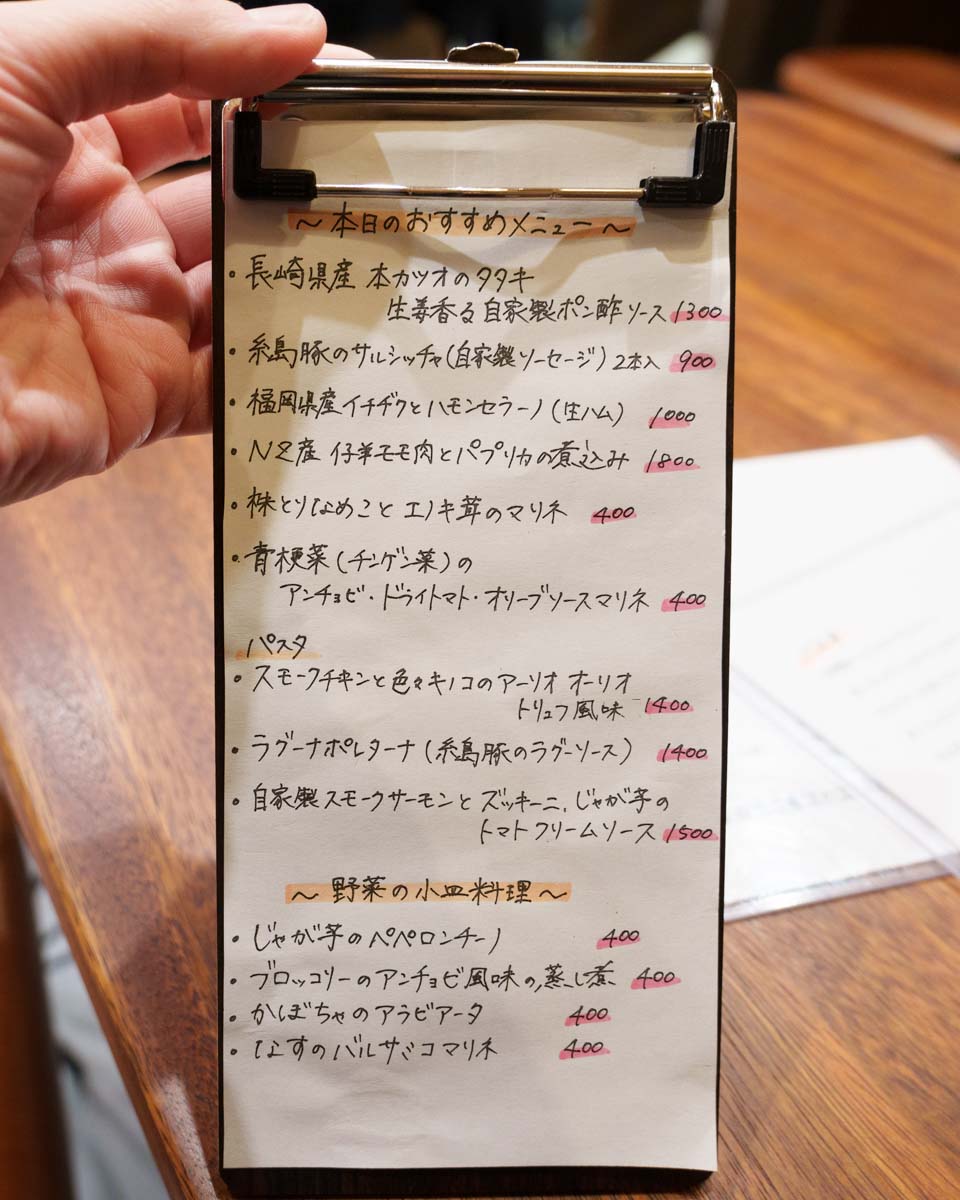 ～本日のおすすめメニュー～
・長崎県産 本カツオのタタキ
生姜香る自家製ポン酢ソース 1300
・糸島豚のサルシッチャ(自家製ソーセージ)2本入 900
・福岡県産イチヂクとハモンセラーノ(生ハム) 1000
・NZ産 仔羊モモ肉とパプリカの煮込み 1800
・株とりなめこと エノキ茸のマリネ 400
・青梗菜(チンゲン菜)の
アンチョビ・ドライトマト・オリーブソースマリネ 400
パスタ
・スモークチキンと色々キノコのアーリオ オーリオ
トリュフ風味 1400
・ラグーナポレターナ(糸島豚のラグーソース) 1400
・自家製スモークサーモンとズッキーニ,じゃが芋の
トマトクリームソース 1500
～野菜の小皿料理～
・じゃが芋のペペロンチーノ 400
・ブロッコリーのアンチョビ風味の蒸し煮 400
・かぼちゃのアラビアータ 400
・なすのバルサミコマリネ 400